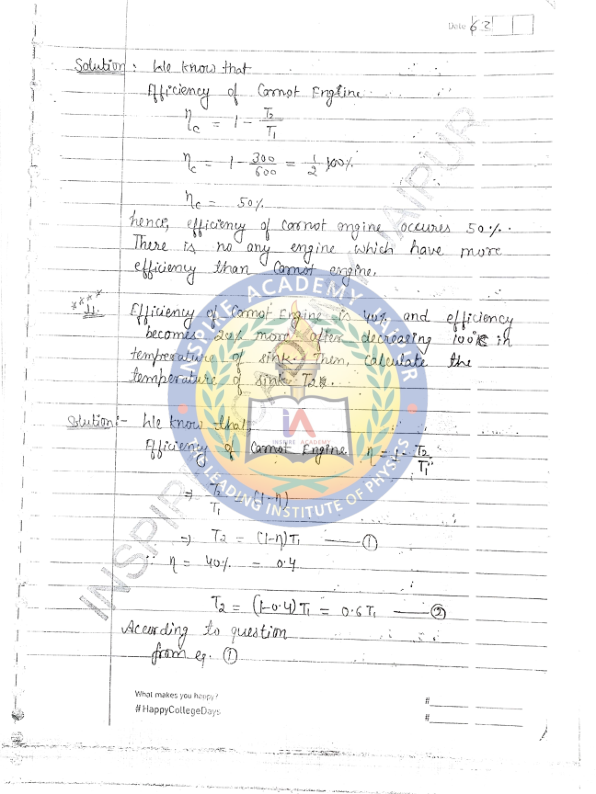 Date 62
Solution : We know that
Efficiency of Carnot Engine
ηc = 1 - T2/T1
ηc = 1 - 300/600 = 1/2 100%
ηc = 50%
hence, efficiency of carnot engine occures 50%.
There is no any engine which have more
efficiency than Carnot engine.
**** 11. Efficiency of Carnot Engine is 40% and efficiency
becomes more after decreasing 100 in
temprerature of sink. Then, calculate the
temperature of sink T2
Slution:- We know that,
Efficiency of Carnot Engine η = 1 - T2/T1
⇒ T2/T1 = (1-η)
⇒ T2 = (1-η)T1 —— ①
∵ η = 40% = 0.4
T2 = (1-0.4)T1 = 0.6T1 —— ②
According to question
from eq. ①
What makes you happy?
#HappyCollegeDays
#
#
INSPIRE ACADEMY JAIPUR
INSPIRE ACADEMY, JAIPUR
iA
INSPIRE ACADEMY
LEADING INSTITUTE OF PHYSICS